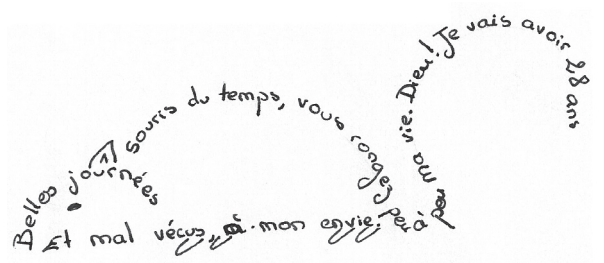 Belles journées souris du temps, vous rongez peu à peu ma vie. Dieu! Je vais avoir 28 ans
Et mal vécus, à mon envie.